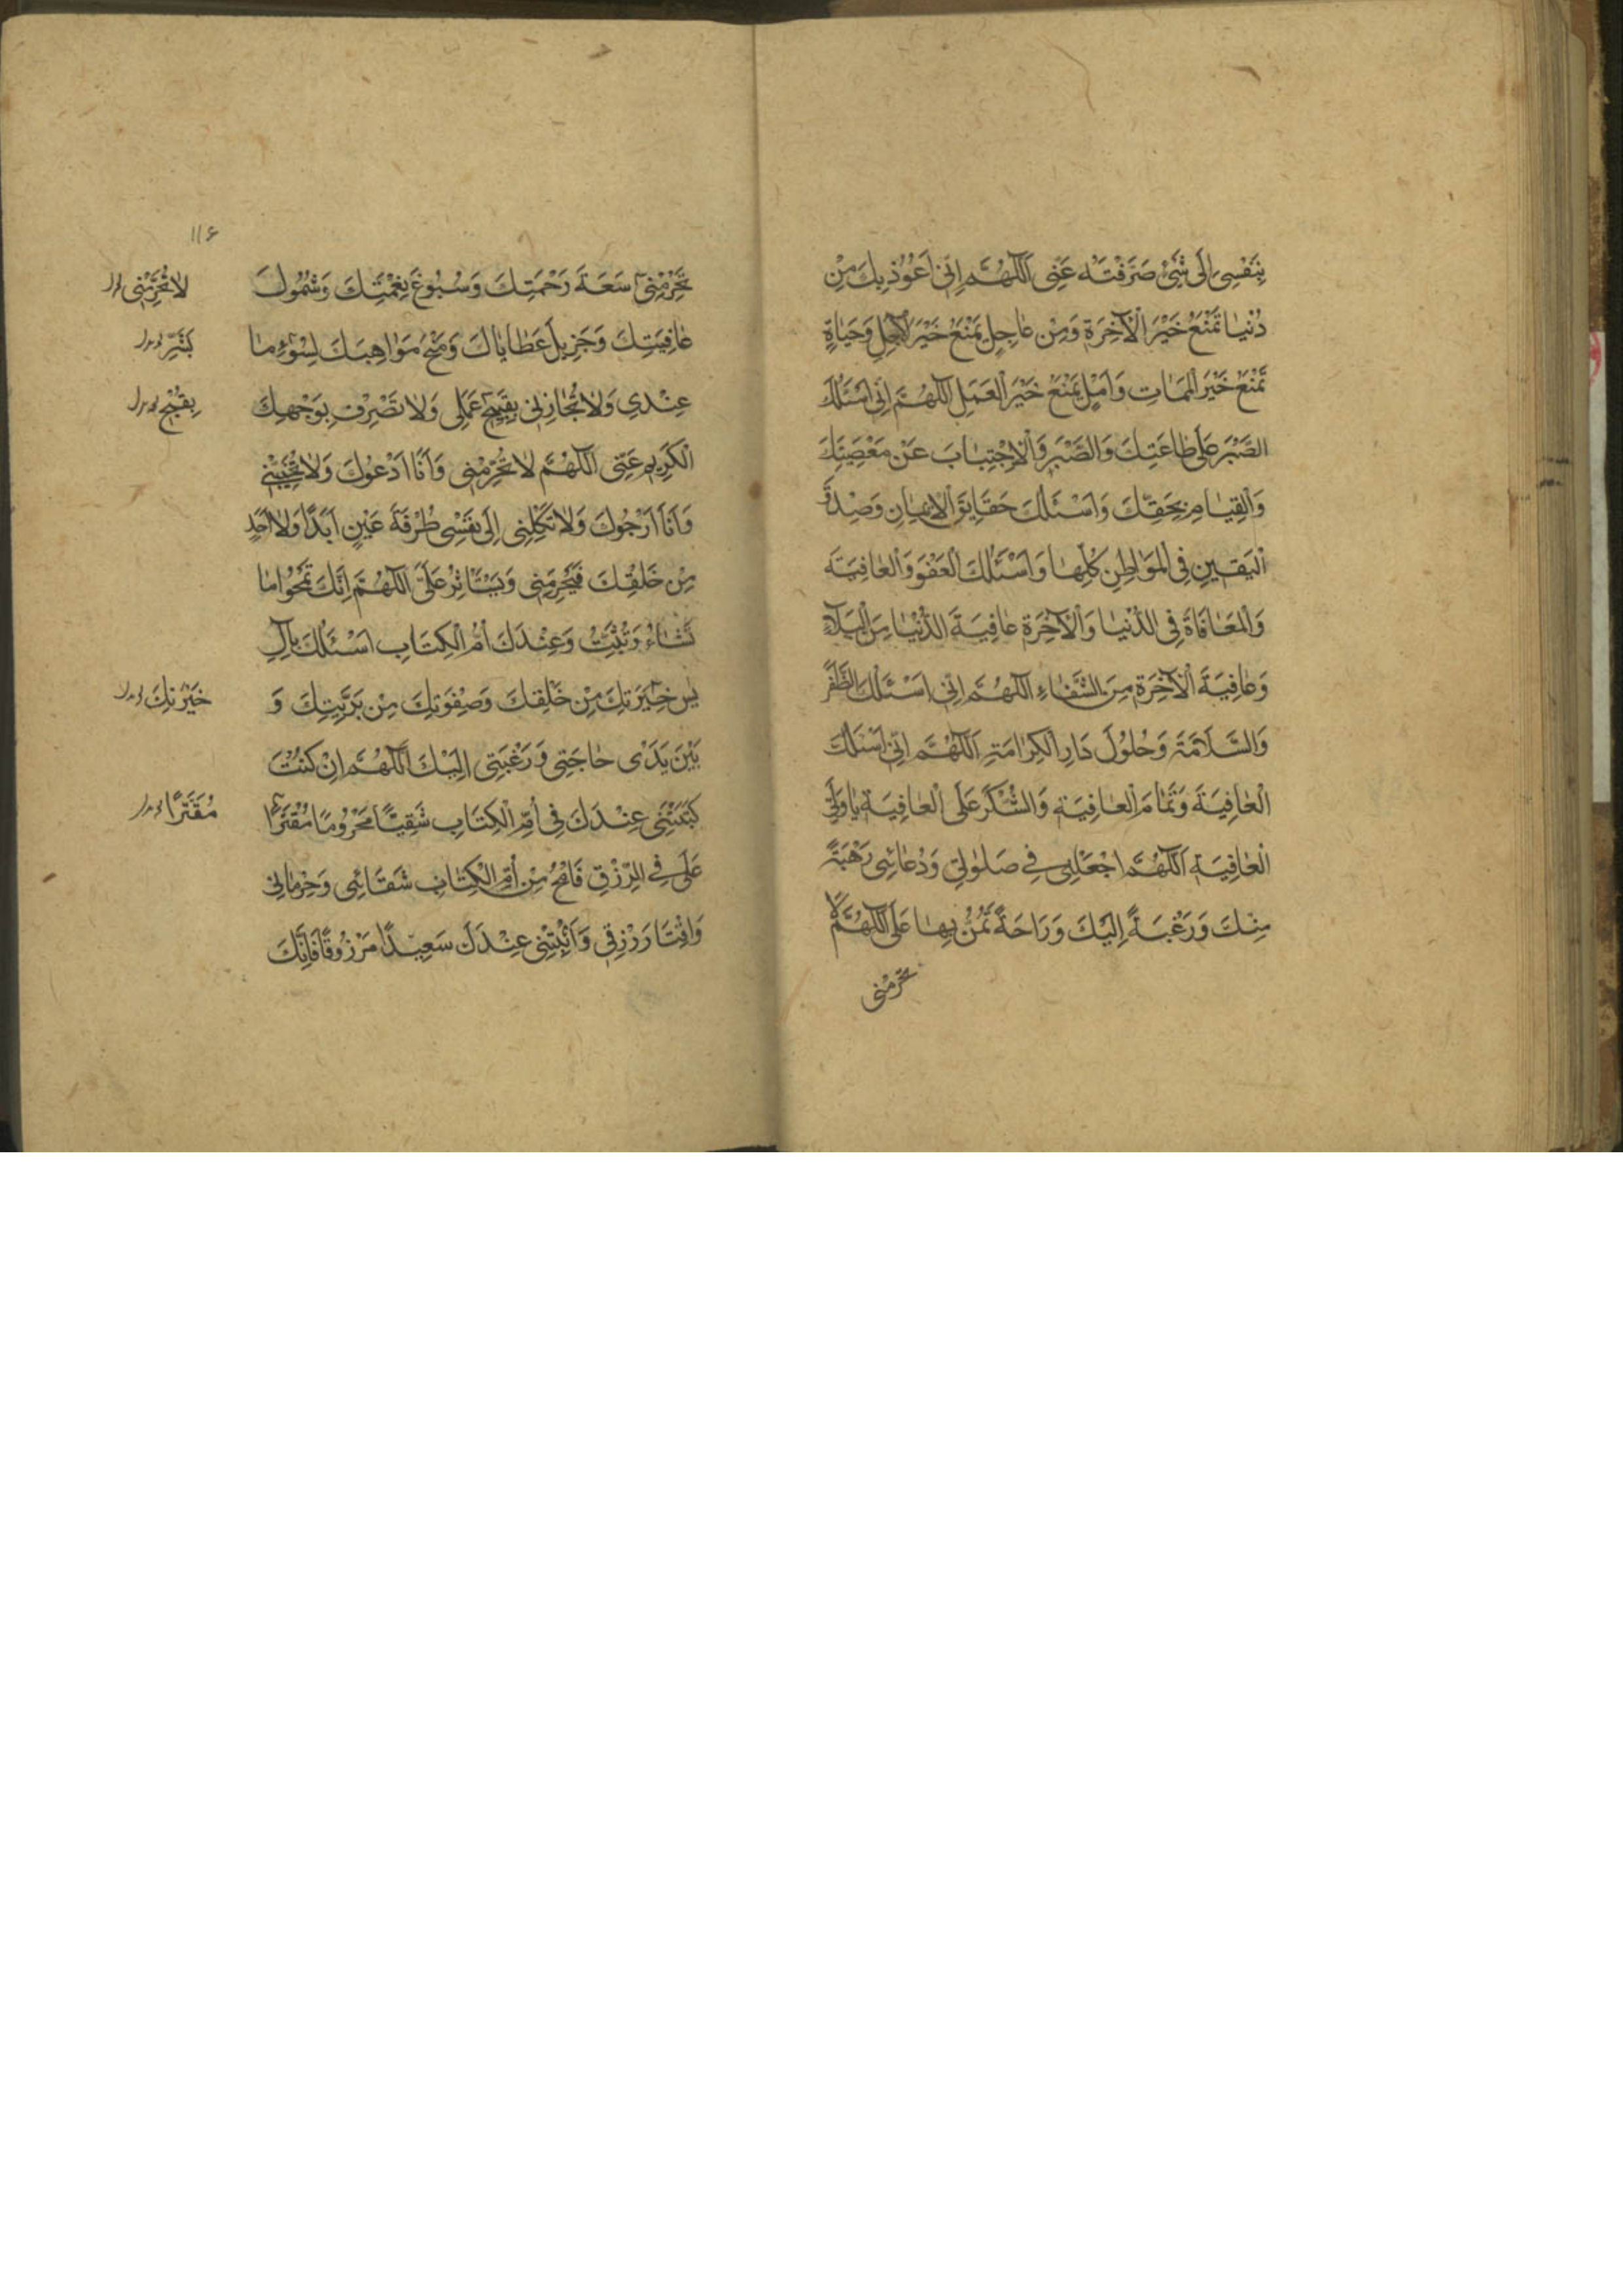 بِنَفْسِی اِلٰی شَیْءٍ صَرَفْتَهُ عَنّی اَللّٰهُمَّ اِنّی اَعُوذُ بِكَ مِنْ
دُنْیٰا تَمْنَعُ خَیْرَ الْآخِرَةِ وَمِنْ عٰاجِلٍ یَمْنَعُ خَیْرَ الْآجِلِ وَحَیٰاةٍ
تَمْنَعُ خَیْرَ الْمَمٰاتِ وَاَمَلٍ یَمْنَعُ خَیْرَ الْعَمَلِ اَللّٰهُمَّ اِنّی اَسْئَلُكَ
الصَّبْرَ عَلٰی طٰاعَتِكَ وَالصَّبْرَ وَالْاِجْتِنٰابَ عَنْ مَعْصِیَتِكَ
وَالْقِیٰامَ بِحَقِّكَ وَاَسْئَلُكَ حَقٰایِقَ الْاِیمٰانِ وَصِدْقَ
الْیَقینِ فِی الْمَوٰاطِنِ كُلِّهٰا وَاَسْئَلُكَ الْعَفْوَ وَالْعٰافِیَةَ
وَالْمُعٰافٰاةَ فِی الدُّنْیٰا وَالْآخِرَةِ عٰافِیَةَ الدُّنْیٰا مِنَ الْبَلٰآءِ
وَعٰافِیَةَ الْآخِرَةِ مِنَ الشَّقٰاءِ اَللّٰهُمَّ اِنّی اَسْئَلُكَ الظَّفَرَ
وَالسَّلٰامَةَ وَحُلُولَ دٰارِ الْكَرٰامَةِ اَللّٰهُمَّ اِنّی اَسْئَلُكَ
الْعٰافِیَةَ وَتَمٰامَ الْعٰافِیَةِ وَالشُّكْرَ عَلَی الْعٰافِیَةِ یٰا وَلِیَّ
الْعٰافِیَةِ اَللّٰهُمَّ اجْعَلْ لی فی صَلٰوتی وَدُعٰائی رَهْبَةً
مِنْكَ وَرَغْبَةً اِلَیْكَ وَرٰاحَةً تَمُنُّ بِهٰا عَلَیَّ اَللّٰهُمَّ لٰا
تَحْرِمْنی
۱۱۶
تَحْرِمْنی سَعَةَ رَحْمَتِكَ وَسُبُوغَ نِعْمَتِكَ وَشُمُولَ
لٰا تُحَرِّمْنی
عٰافِیَتِكَ وَجَزیلَ عَطٰایٰاكَ وَمَنْحَ مَوٰاهِبِكَ لِسُوءِ مٰا
عِنْدی وَلٰا تُجٰازِنی بِقَبیحِ عَمَلی وَلٰا تَصْرِفْ بِوَجْهِكَ
بِقُبْحِ
الْكَریمِ عَنّی اَللّٰهُمَّ لٰا تَحْرِمْنی وَاَنَا اَدْعُوكَ وَلٰا تُخَیِّبْنی
وَاَنَا اَرْجُوكَ وَلٰا تَكِلْنی اِلٰی نَفْسی طَرْفَةَ عَیْنٍ اَبَدًا وَلٰا اَحَدٍ
مِنْ خَلْقِكَ فَیَحْرِمَنی وَیَسْتَاْثِرَ عَلَیَّ اَللّٰهُمَّ اِنَّكَ تَمْحُوا مٰا
تَشٰاءُ وَتُثْبِتُ وَعِنْدَكَ اُمُّ الْكِتٰابِ اَسْئَلُكَ بِآلِ
یٰس خِیَرَتِكَ مِنْ خَلْقِكَ وَصِفْوَتِكَ مِنْ بَرِیَّتِكَ وَ
خَیْرَتِكَ
بَیْنَ یَدَیْ حٰاجَتی وَرَغْبَتی اِلَیْكَ اَللّٰهُمَّ اِنْ كُنْتَ
كَتَبْتَنی عِنْدَكَ فی اُمِّ الْكِتٰابِ شَقِیًّا مَحْرُومًا مُقْتَرًا
مُقَتَّرًا
عَلَیَّ فِی الرِّزْقِ فَامْحُ مِنْ اُمِّ الْكِتٰابِ شَقٰائی وَحِرْمٰانی
وَاقْتٰارَ رِزْقی وَاَثْبِتْنی عِنْدَكَ سَعیدًا مَرْزُوقًا فَاِنَّكَ